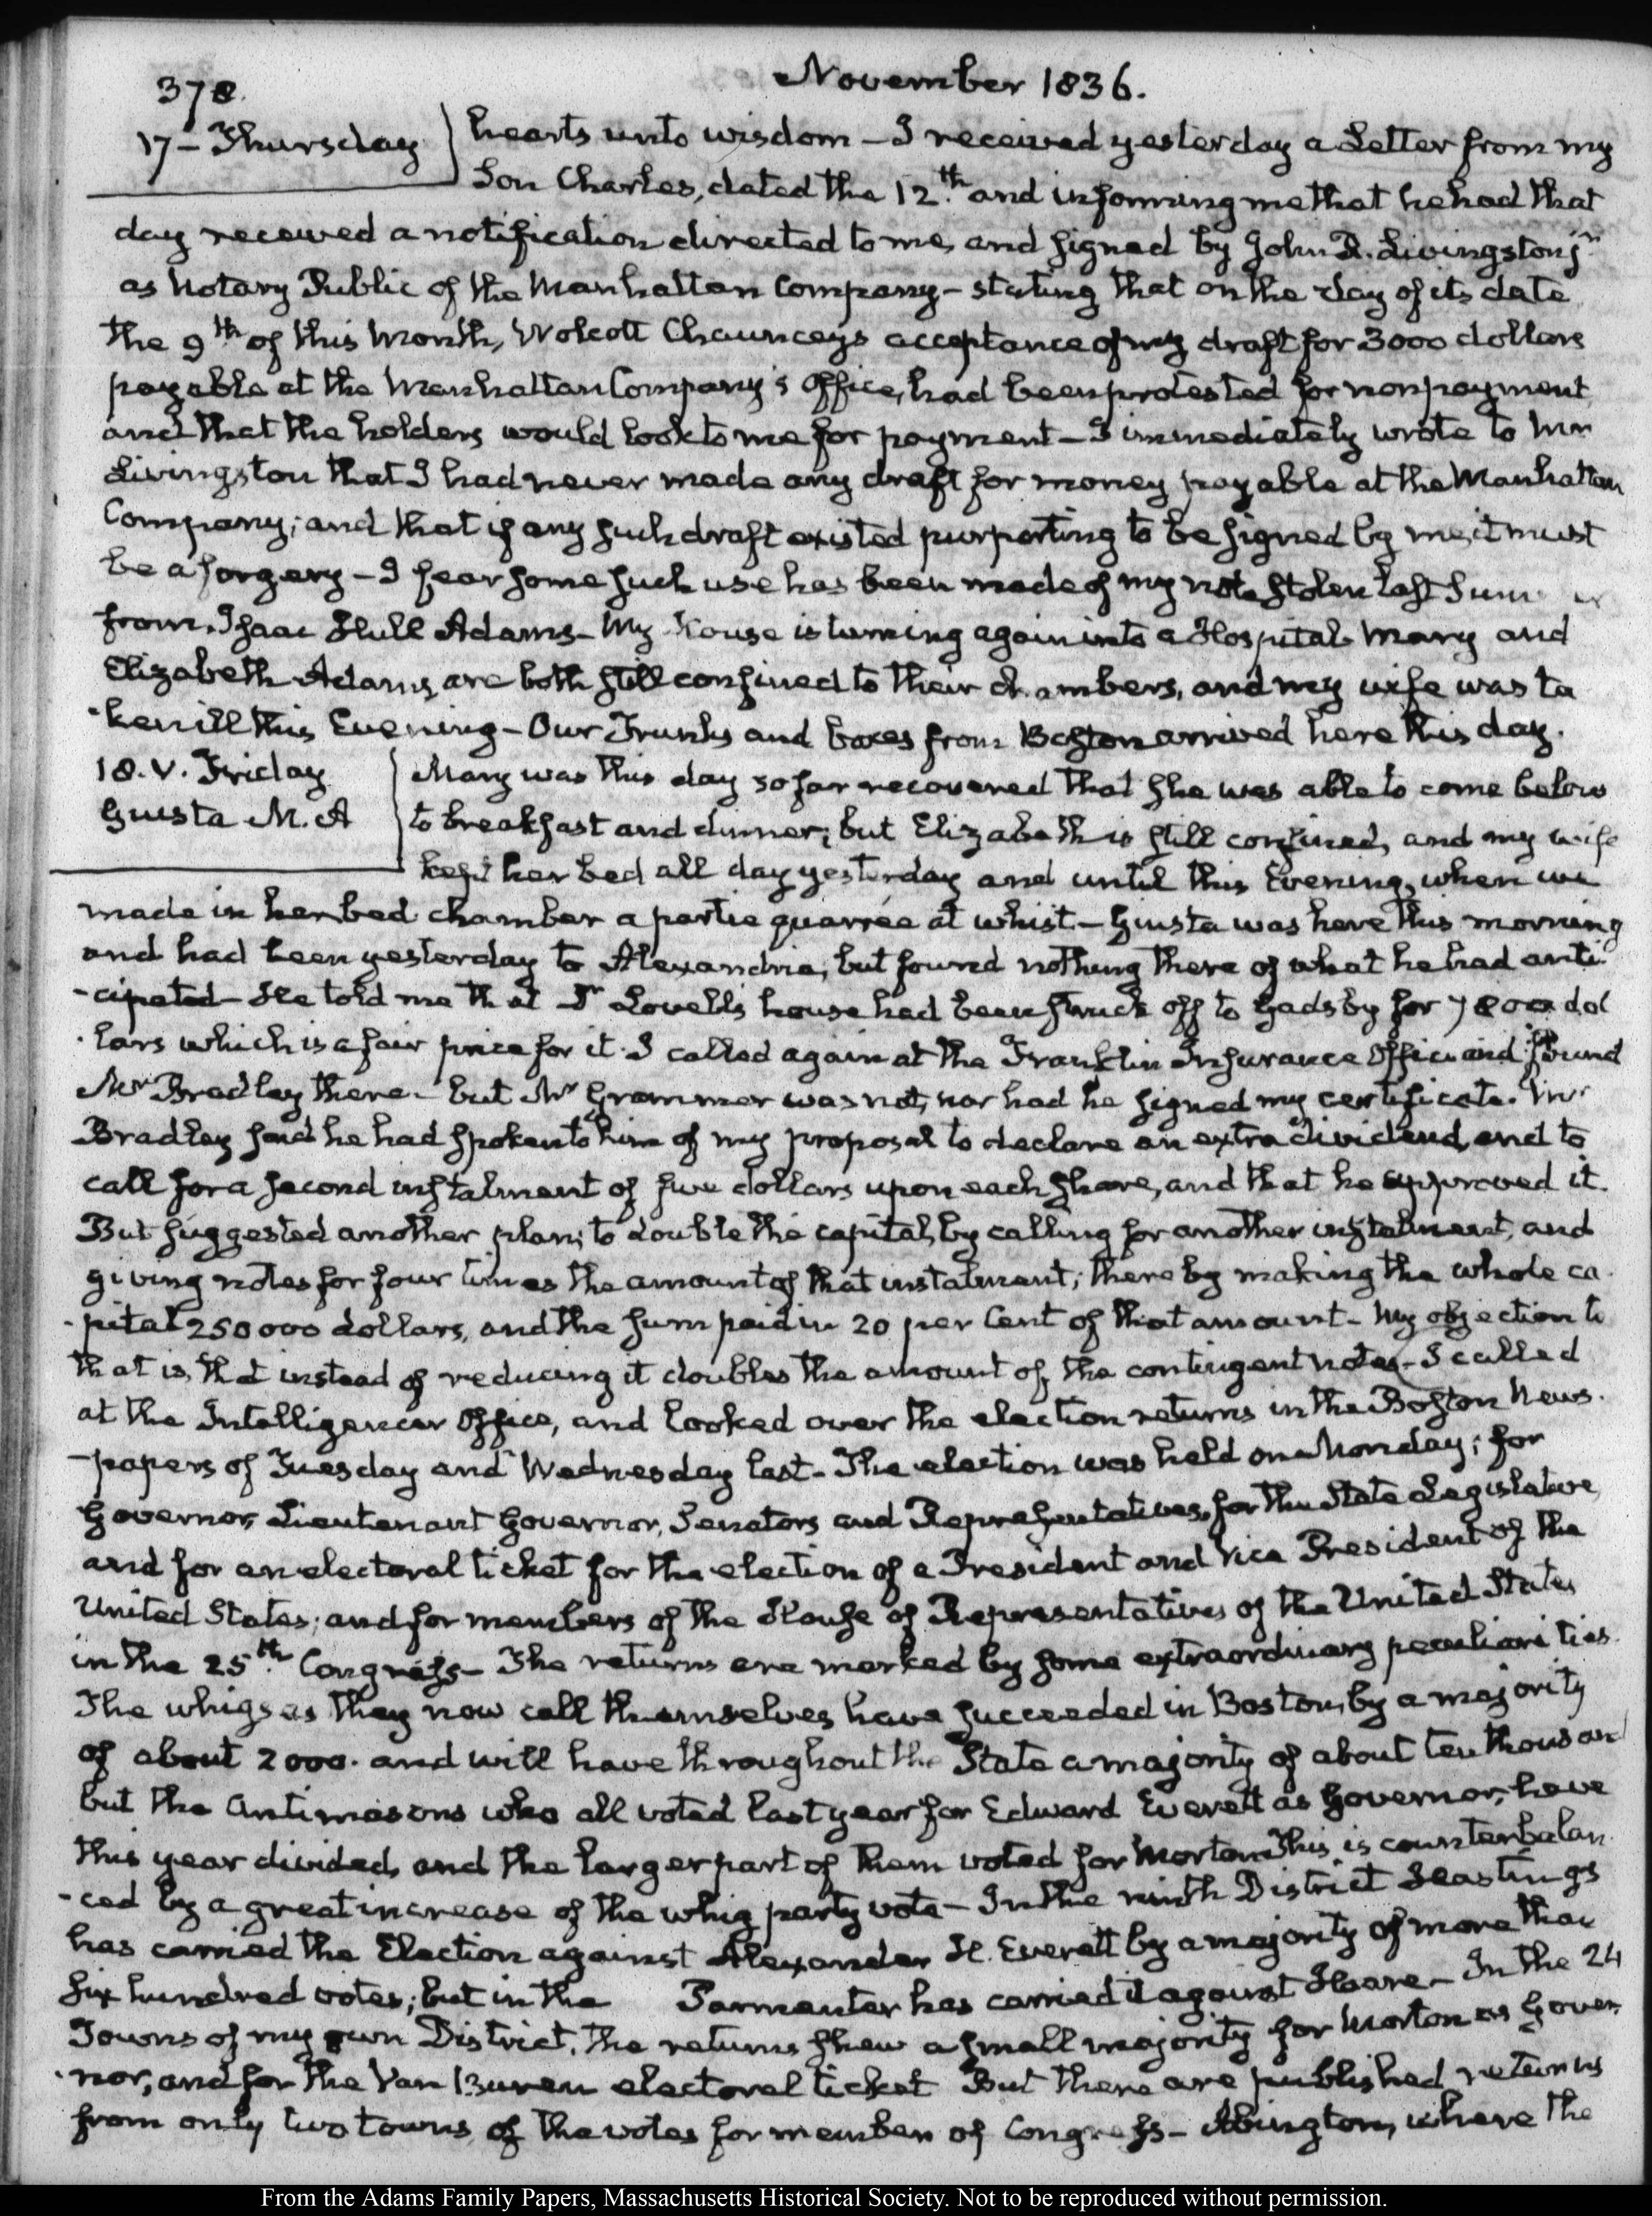 378.
November 1836.
17 - Thursday
hearts unto wisdom - I received yesterday a Letter from my
Son Charles, dated the 12th. and informing me that he had that
day received a notification directed to me, and signed by John R. Livingston jr.
as Notary Public of the Manhattan Company - stating that on the day of its date
the 9th. of this Month, Wolcott Chauncey's acceptance of my draft for 3000 dollars
payable at the Manhattan Company's Office, had been protested for nonpayment
and that the holders would look to me for payment - I immediately wrote to Mr
Livingston that I had never made any draft for money payable at the Manhattan
Company; and that if any such draft existed purporting to be signed by me, it must
be a forgery - I fear some such use has been made of my note stolen last
from Isaac Hull Adams - My House is turning again into a Hospital. Mary and
Elizabeth Adams, are both still confined to their chambers, and my wife was ta
-ken ill this Evening - Our Trunks and boxes from Boston arrived here this day.
18. V. Friday
Giusta M. A
Mary was this day so far recovered that she was able to come below
to breakfast and dinner; but Elizabeth is still confined, and my wife
kept her bed all day yesterday and until this Evening, when we
made in her bed chamber a partie quarrée at whist - Giusta was here this morning
and had been yesterday to Alexandria, but found nothing there of what he had anti
-cipated - He told me that Dr Lovell's house had been struck off to Gadsby for 7800 dol
-lars which is a fair price for it. I called again at the Franklin Insurance Office and found
Mr Bradley there - but Mr Grammer was not, nor had he signed my certificate. Mr
Bradley said he had spoken to him of my proposal to declare an extra dividend, and to
call for a second instalment of five dollars upon each share, and that he approved it.
But suggested another plan; to double the capital, by calling for another instalment, and
giving notes for four times the amount of that instalment; thereby making the whole ca
-pital 250000 dollars, and the sum paid in 20 per Cent of that amount - My objection to
that is, that instead of reducing it doubles the amount of the contingent notes - I called
at the Intelligencer Office, and looked over the election returns in the Boston News.
-papers of Tuesday and Wednesday last - The election was held on Monday; for
Governor, Lieutenant Governor, Senators and Representatives, for the State Legislature,
and for an electoral ticket for the election of a President and Vice President of the
United States; and for members of the House of Representatives of the United States
in the 25th. Congress - The returns are marked by some extraordinary peculiarities.
The whigs as they now call themselves have succeeded in Boston, by a majority
of about 2000. and will have throughout the State a majority of about ten thousand
but the Antimasons who all voted last year for Edward Everett as Governor, have
this year divided, and the larger part of them voted for Morton. This is counterbalan
-ced by a great increase of the whig party vote - In the ninth District Hastings
has carried the Election against Alexander H. Everett by a majority of more than
six hundred votes; but in the Parmenter has carried it against Hoare - In the 24
Towns of my own District, the returns shew a small majority for Morton as Gover
-nor, and for the Van Buren electoral ticket But there are published returns
from only two towns of the votes for member of Congress - Abington, where the
From the Adams Family Papers, Massachusetts Historical Society. Not to be reproduced without permission.